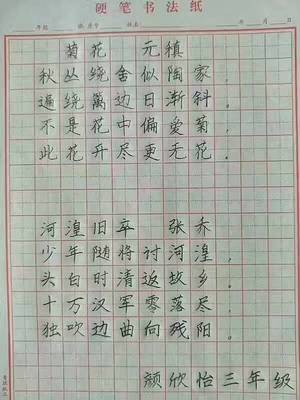 硬笔书法纸
年级 班 姓名 年 月 日
菊花 元稹
秋丛绕舍似陶家，
遍绕篱边日渐斜。
不是花中偏爱菊，
此花开尽更无花。
河湟旧卒 张乔
少年随将讨河湟，
头白时清返故乡。
十万汉军零落尽
独吹边曲向残阳。
颜欣怡三年级